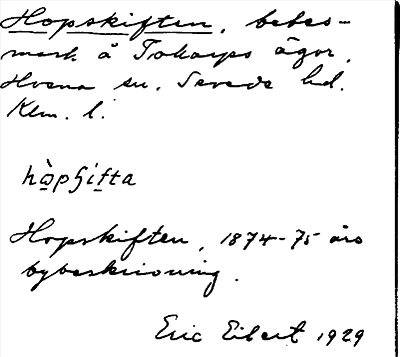 Hopskiften, bebos-
mark å Tokarps ägor,
Hvena sn. Sevede hd.
Klm. l.
hòpʂifta
Hopskiften, 1874-75 års
bybeskrivning.
Eric Elbert 1929